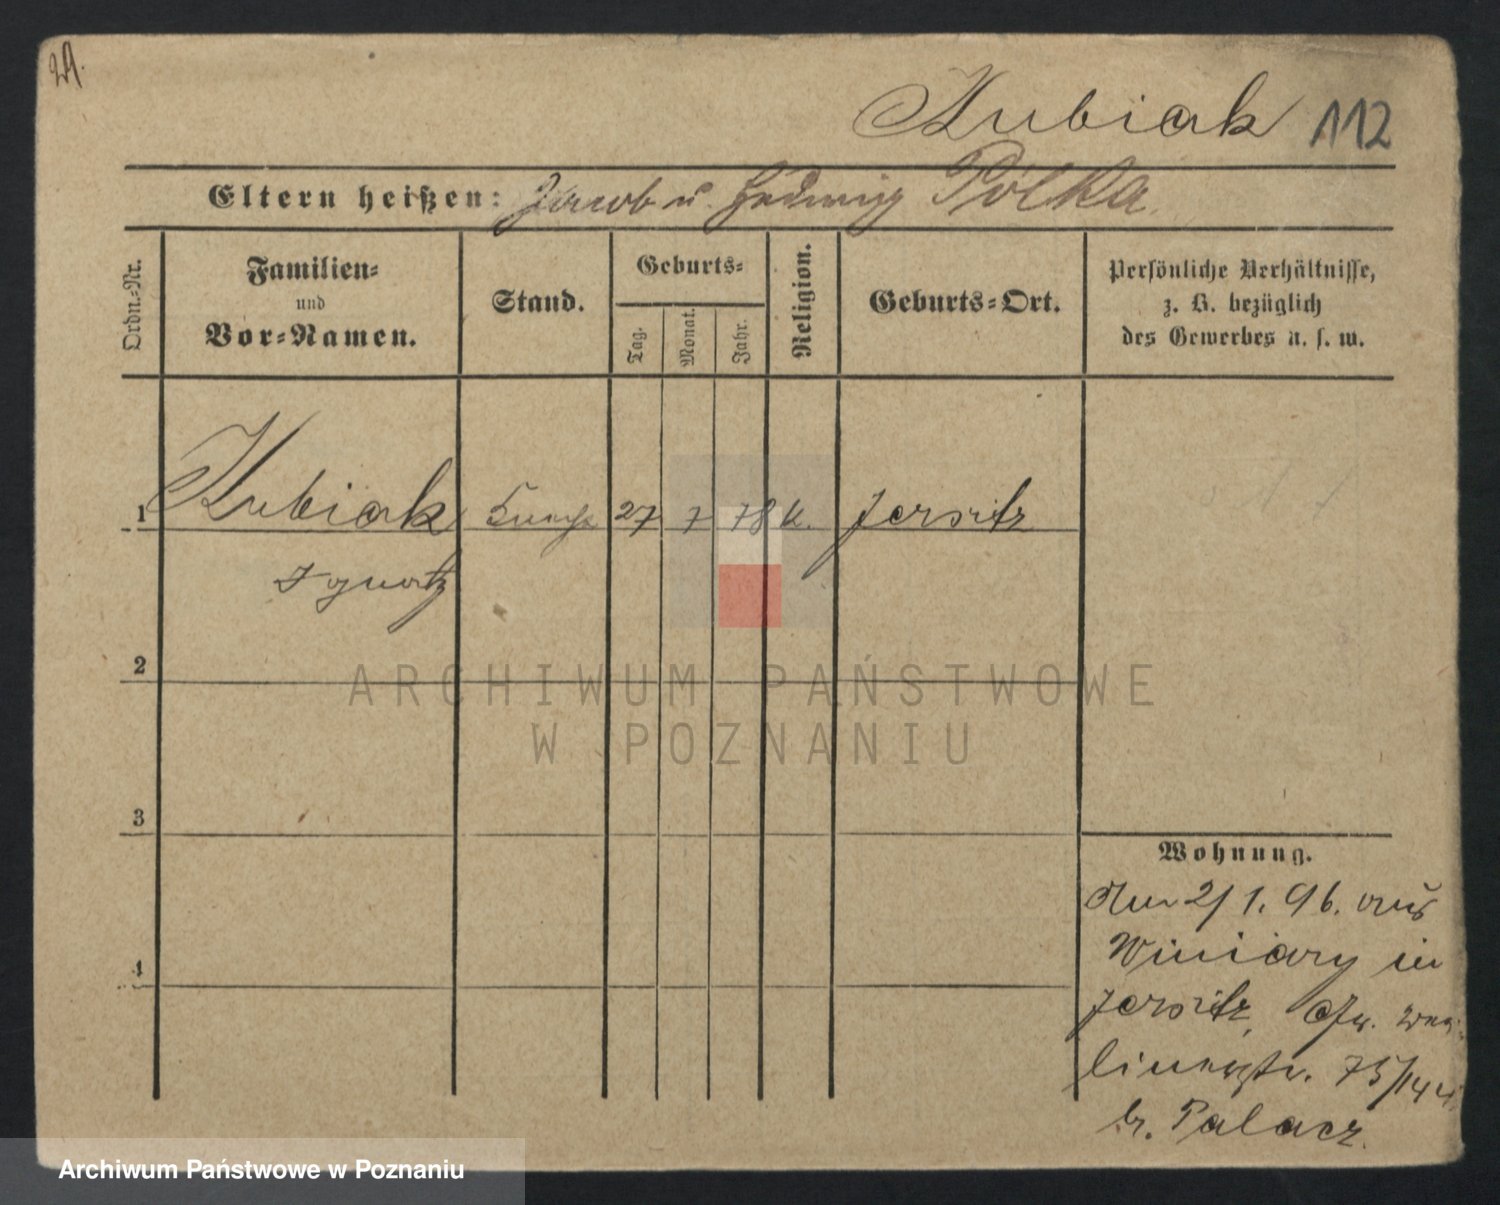 Kubiak 112
Eltern heißen: Jacob u. Hedwig Polka
Ordn.-Nr.
Familien-
und
Vor-Namen.
Stand.
Geburts-
Tag.
Monat.
Jahr.
Religion.
Geburts-Ort.
Persönliche Verhältnisse,
z. B. bezüglich
des Gewerbes u. s. w.
1 Kubiak 27 7 78 k. Jersitz
Ignatz
2
3
4
Wohnung.
2/1. 96. aus
Winiary in
Jersitz,
75/14
b. Palacz.
ARCHIWUM PAŃSTWOWE
W POZNANIU
Archiwum Państwowe w Poznaniu